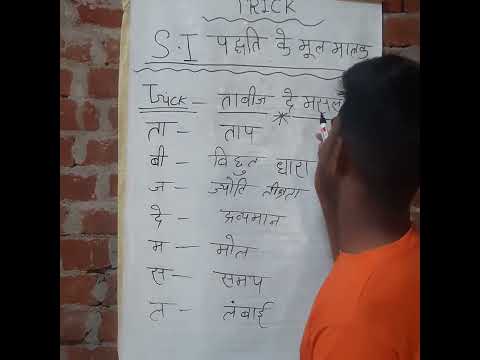 TRICK
S.I पद्धति के मूल मात्रक
Trick - ताबीज दे मसल
ता - ताप
बी - विद्युत धारा
ज - ज्योति तीव्रता
दे - द्रव्यमान
म - मोल
स - समय
ल - लंबाई